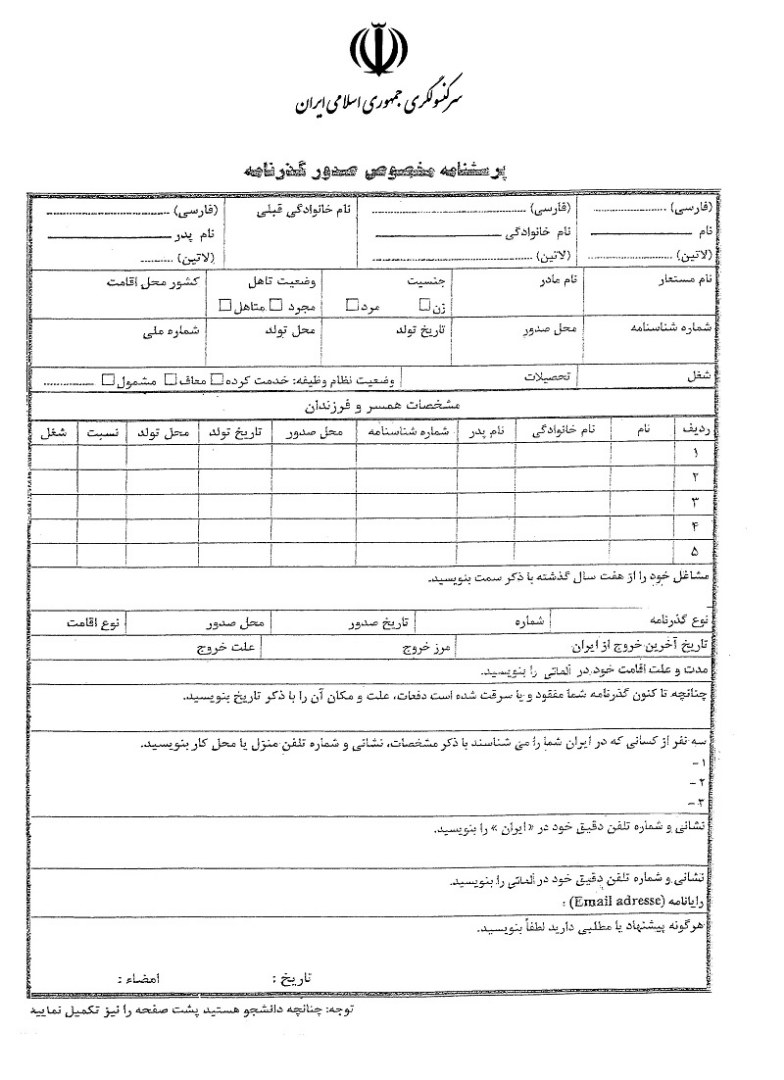 سرکنسولگری جمهوری اسلامی ایران
پرسشنامه مخصوص صدور گذرنامه
(فارسی) .................... (فارسی) .................... نام خانوادگی قبلی (فارسی) ....................
نام ____________ نام خانوادگی ____________ نام پدر ____________
(لاتین) .................... (لاتین) .................... (لاتین) ..........
نام مستعار نام مادر جنسیت وضعیت تاهل کشور محل اقامت
زن□ مرد□ مجرد □ متاهل□
شماره شناسنامه محل صدور تاریخ تولد محل تولد شماره ملی
شغل تحصیلات وضعیت نظام وظیفه: خدمت کرده□ معاف□ مشمول□ ................
مشخصات همسر و فرزندان
ردیف نام نام خانوادگی نام پدر شماره شناسنامه محل صدور تاریخ تولد محل تولد نسبت شغل
۱
۲
۳
۴
۵
مشاغل خود را از هفت سال گذشته با ذکر سمت بنویسید.
نوع گذرنامه شماره تاریخ صدور محل صدور نوع اقامت
تاریخ آخرین خروج از ایران مرز خروج علت خروج
مدت و علت اقامت خود در آلماتی را بنویسید.
چنانچه تا کنون گذرنامه شما مفقود و یا سرقت شده است دفعات، علت و مکان آن را با ذکر تاریخ بنویسید.
سه نفر از کسانی که در ایران شما را می شناسند با ذکر مشخصات، نشانی و شماره تلفن منزل یا محل کار بنویسید.
۱-
۲-
۳-
نشانی و شماره تلفن دقیق خود در «ایران» را بنویسید.
نشانی و شماره تلفن دقیق خود در آلماتی را بنویسید.
رایانامه (Email adresse) :
هرگونه پیشنهاد یا مطلبی دارید لطفاً بنویسید.
تاریخ : امضاء :
توجه: چنانچه دانشجو هستید پشت صفحه را نیز تکمیل نمایید